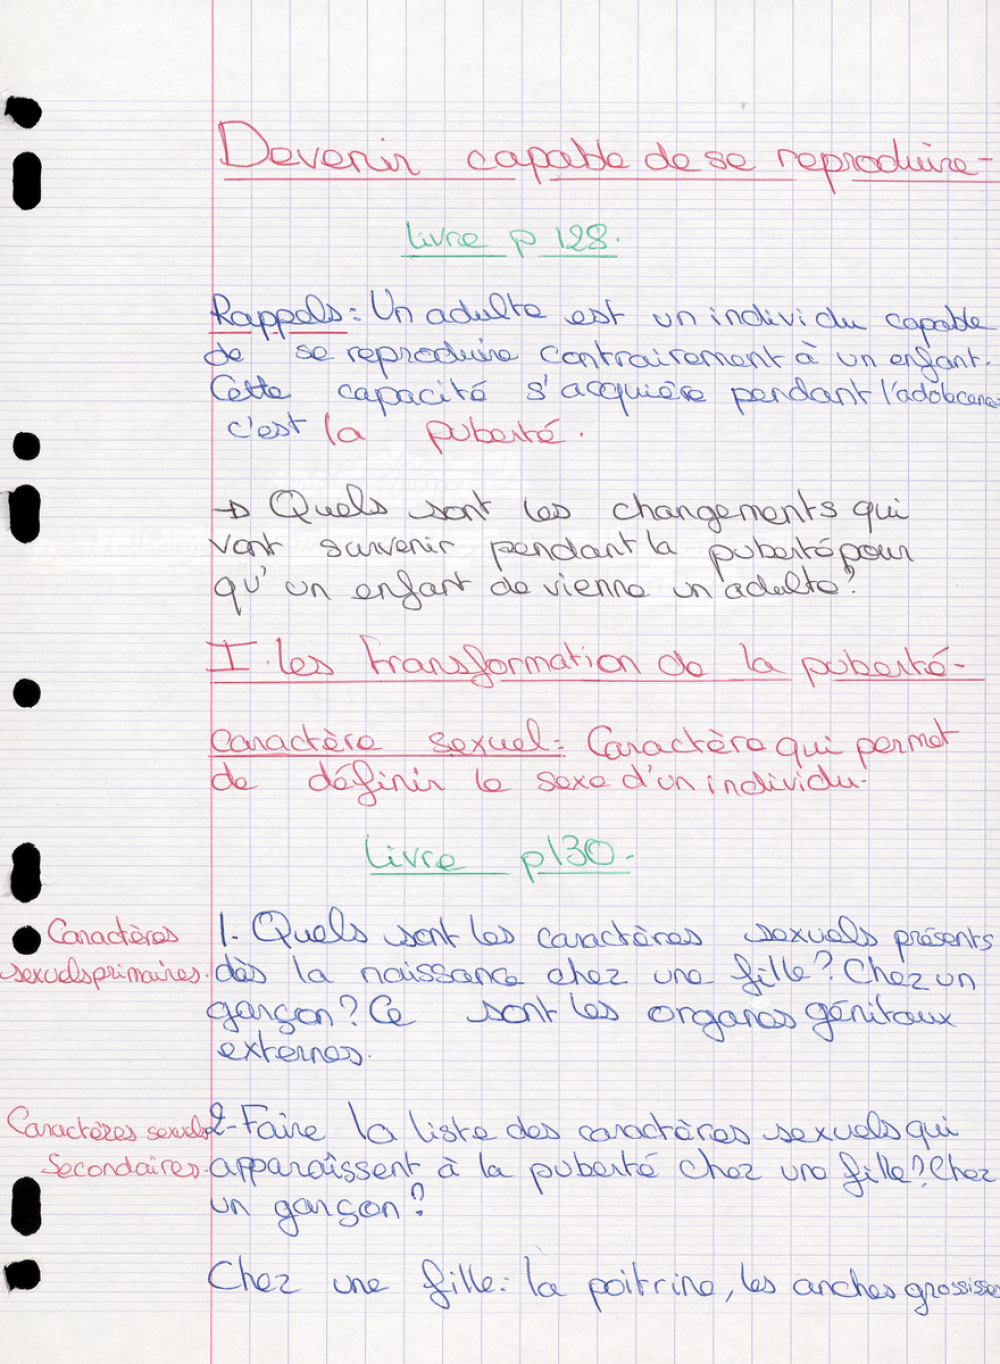 Devenir capable de se reproduire-
livre p 128.
Rappels: Un adulte est un individu capable
de se reproduire contrairement à un enfant.
Cette capacité s'acquière pendant l'adolscence
c'est la puberté.
→ Quels sont les changements qui
vont survenir pendant la puberté pour
qu'un enfant devienne un adulte?
I. les transformation de la puberté-
Caractère sexuel: Caractère qui permet
de définir le sexe d'un individu.
Livre p130.
Caractères
sexuels primaires.
1. Quels sont les caractères sexuels présents
dès la naissance chez une fille? Chez un
garçon? Ce sont les organes génitaux
externes.
Caractères sexuels
Secondaires.
2-Faire la liste des caractères sexuels qui
apparaîssent à la puberté chez une fille? Chez
un garçon?
Chez une fille: la poitrine, les anches